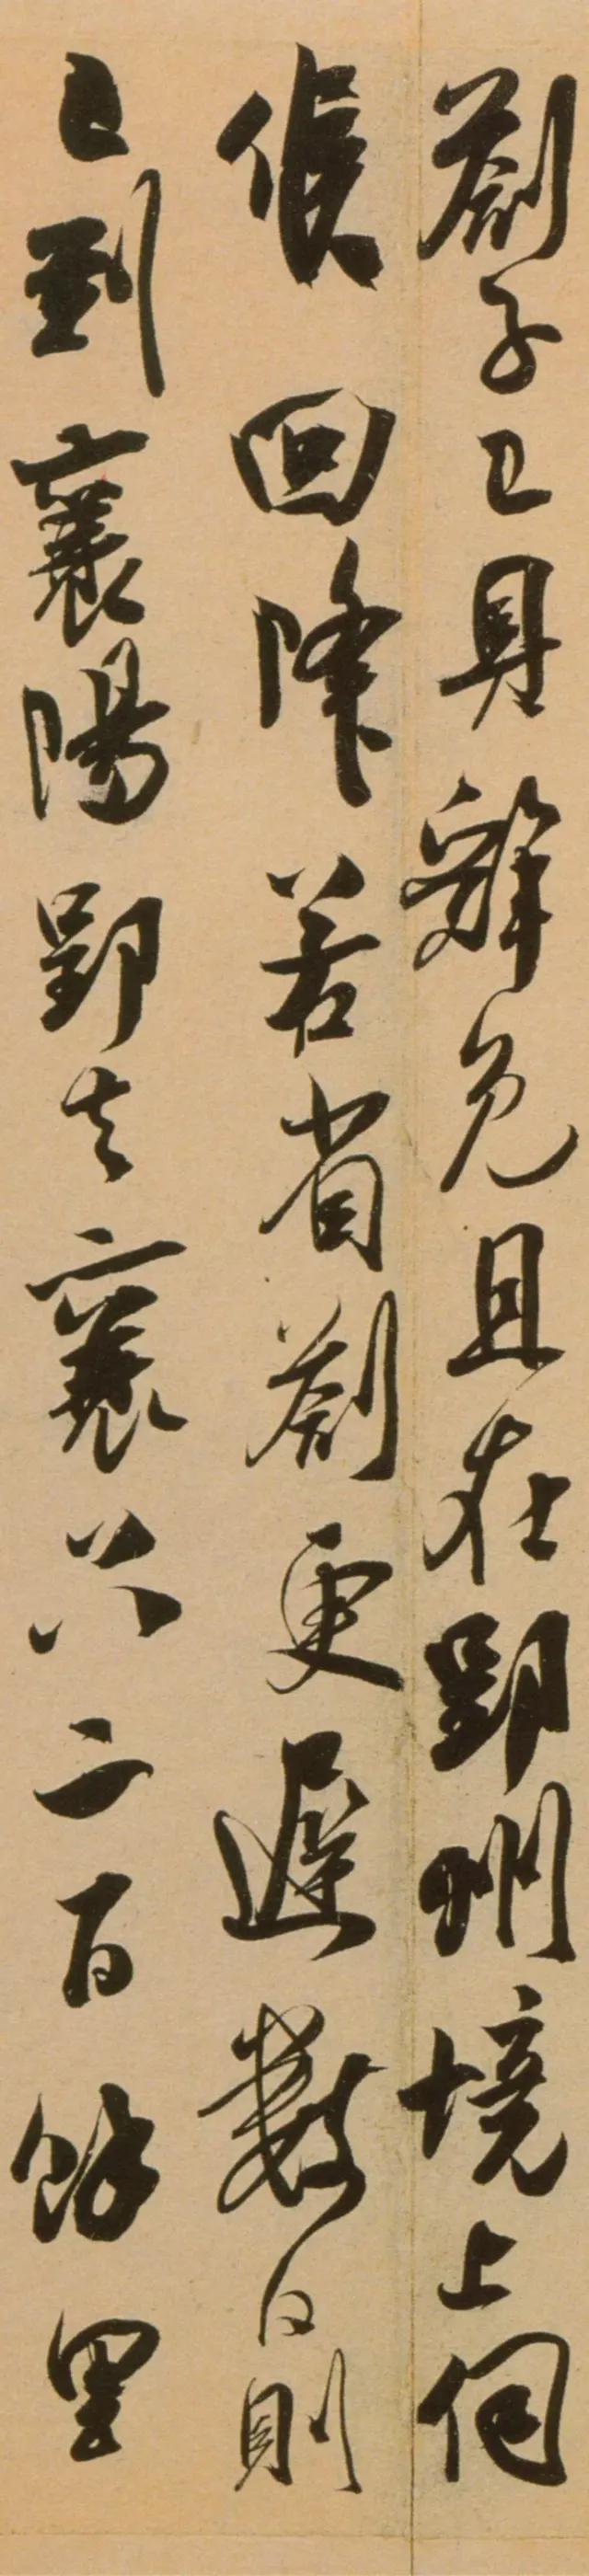 劄子已具辭免且在郢州境上伺
候回降若省劄更遲數日則
已到襄陽郢去襄只二百餘里